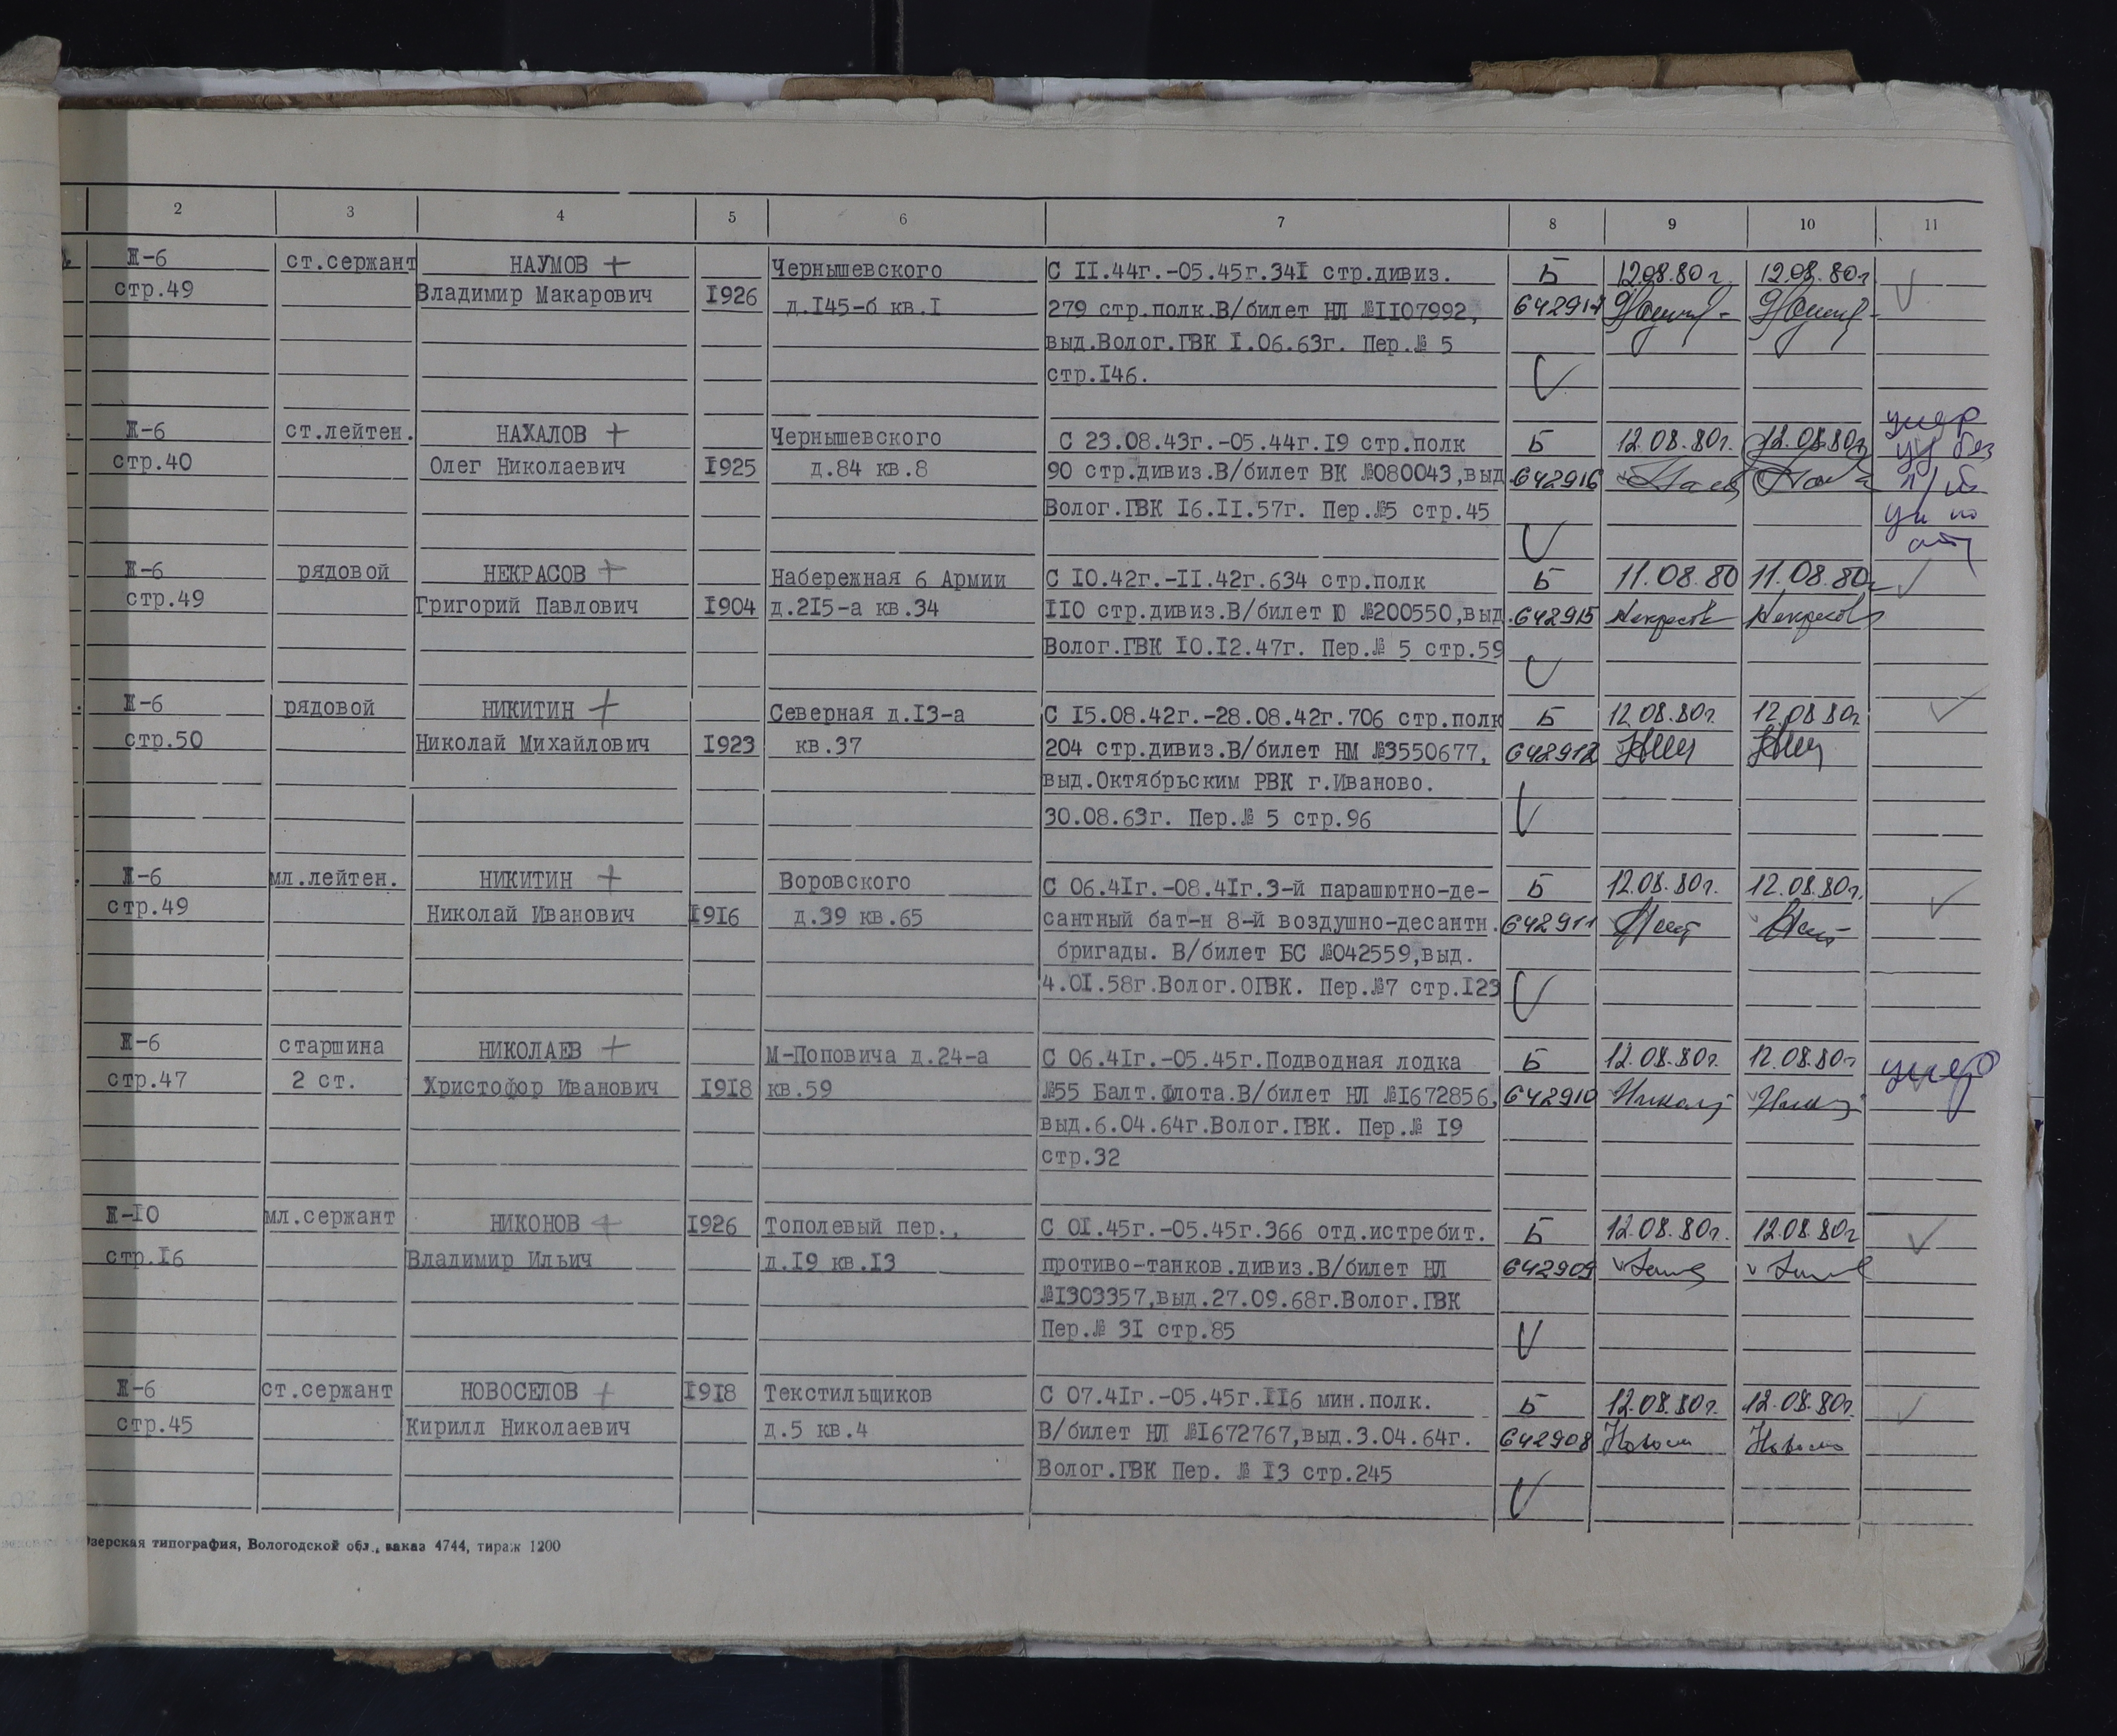 2 3 4 5 6 7 8 9 10 11
Ж-6 ст.сержант НАУМОВ + Чернышевского С II.44г.-05.45г.34I стр.дивиз. Б 12.08.80г. 12.08.80г
стр.49 Владимир Макарович I926 д.I45-б кв.I 279 стр.полк.В/билет НЛ №II07992,
выд.Волог.ГВК I.06.63г. Пер.№ 5
стр.I46.
Ж-6 ст.лейтен. НАХАЛОВ + Чернышевского С 23.08.43г.-05.44г.I9 стр.полк Б 12.08.80г. 12.08.80г умер
стр.40 Олег Николаевич I925 д.84 кв.8 90 стр.дивиз.В/билет ВК №080043,выд. 642916
Волог.ГВК I6.II.57г. Пер.№5 стр.45
Ж-6 рядовой НЕКРАСОВ + Набережная 6 Армии С I0.42г.-II.42г.634 стр.полк Б 11.08.80 11.08.80г
стр.49 Григорий Павлович I904 д.2I5-а кв.34 II0 стр.дивиз.В/билет Ю №200550,выд. 642915 Некрасов Некрасов
Волог.ГВК I0.I2.47г. Пер.№ 5 стр.59
Ж-6 рядовой НИКИТИН + Северная д.I3-а С I5.08.42г.-28.08.42г.706 стр.полк Б 12.08.80г. 12.08.80г
стр.50 Николай Михайлович I923 кв.37 204 стр.дивиз.В/билет НМ №3550677, 642912
выд.Октябрьским РВК г.Иваново.
30.08.63г. Пер.№ 5 стр.96
Ж-6 мл.лейтен. НИКИТИН + Воровского С 06.4Iг.-08.4Iг.3-й парашютно-де- Б 12.08.80г. 12.08.80г.
стр.49 Николай Иванович I9I6 д.39 кв.65 сантный бат-н 8-й воздушно-десантн. 642911
бригады. В/билет БС №042559,выд.
4.0I.58г.Волог.ОГВК. Пер.№7 стр.I23
Ж-6 старшина НИКОЛАЕВ + М-Поповича д.24-а С 06.4Iг.-05.45г.Подводная лодка Б 12.08.80г. 12.08.80г умер
стр.47 2 ст. Христофор Иванович I9I8 кв.59 №55 Балт.Флота.В/билет НЛ №I672856, 642910
выд.6.04.64г.Волог.ГВК. Пер.№ I9
стр.32
Ж-I0 мл.сержант НИКОНОВ + I926 Тополевый пер., С 0I.45г.-05.45г.366 отд.истребит. Б 12.08.80г. 12.08.80г
стр.I6 Владимир Ильич д.I9 кв.I3 противо-танков.дивиз.В/билет НЛ 642909
№I303357,выд.27.09.68г.Волог.ГВК
Пер.№ 3I стр.85
Ж-6 ст.сержант НОВОСЕЛОВ + I9I8 Текстильщиков С 07.4Iг.-05.45г.II6 мин.полк. Б 12.08.80г. 12.08.80г.
стр.45 Кирилл Николаевич д.5 кв.4 В/билет НЛ №I672767,выд.3.04.64г. 642908
Волог.ГВК Пер. № I3 стр.245
зерская типография, Вологодской обл., заказ 4744, тираж 1200